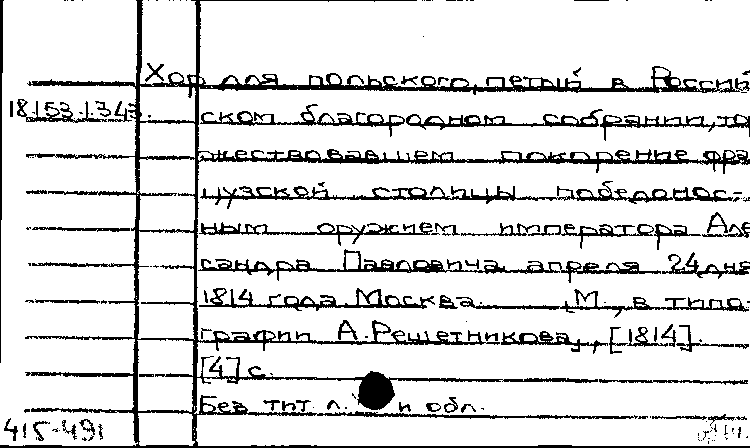 Хор для польского, петый в Россий
18.153.1.343. ском благородном собрании, тор
жествовавшем покорение фран
цузской столицы победонос-
ным оружием императора Алек
сандра Павловича апреля 24 дня
1814 года. Москва. [М., в типо-
графии А. Решетникова], [1814].
[4] с.
Без тит. л. и обл.
415-491